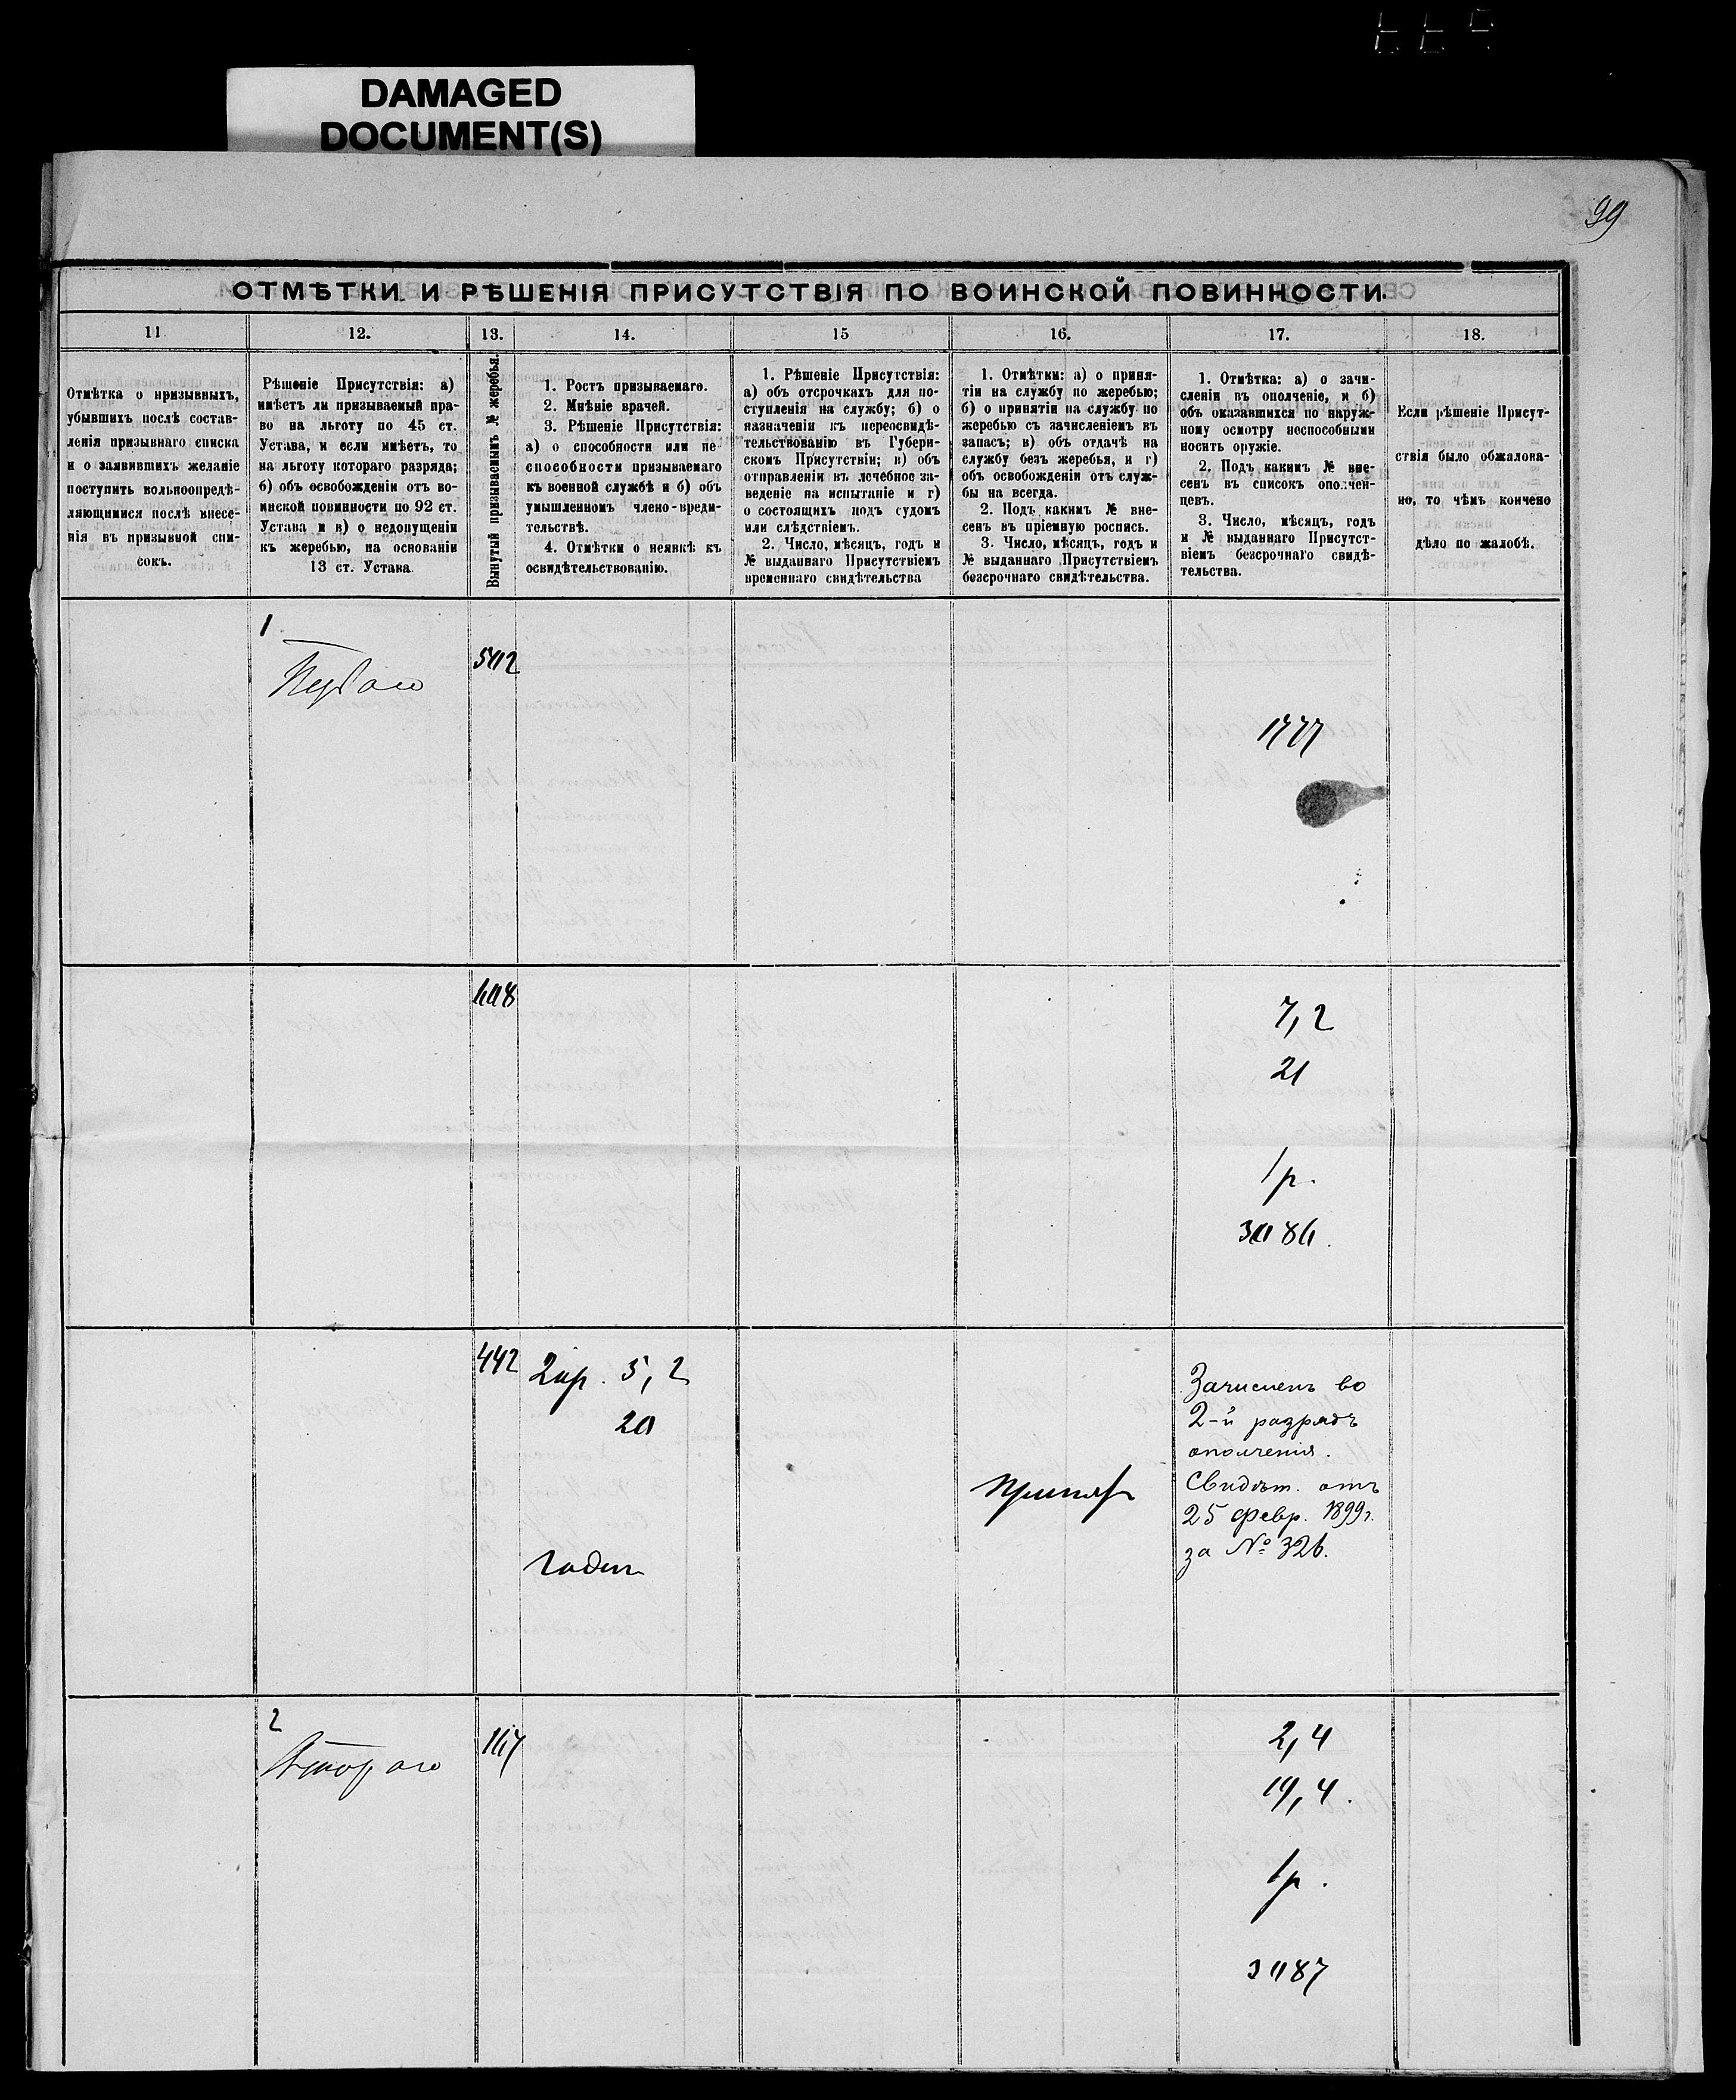 DAMAGED
DOCUMENT(S)
99
ОТМѢТКИ И РѢШЕНІЯ ПРИСУТСТВІЯ ПО ВОИНСКОЙ ПОВИННОСТИ.
11 12. 13. 14. 15 16. 17. 18.
Отмѣтка о призывныхъ,
убывшихъ послѣ состав-
ленія призывнаго списка
и о заявившихъ желаніе
поступить вольноопредѣ-
ляющимися послѣ внесе-
нія въ призывной спи-
сокъ.
Рѣшеніе Присутствія: а)
имѣетъ ли призываемый пра-
во на льготу по 45 ст.
Устава, и если имѣетъ, то
на льготу котораго разряда;
б) объ освобожденіи отъ во-
инской повинности по 92 ст.
Устава и в) о недопущеніи
къ жеребью, на основаніи
13 ст. Устава
Вынутый призываемымъ № жеребья.
1. Ростъ призываемаго.
2. Мнѣніе врачей.
3. Рѣшеніе Присутствія:
а) о способности или не
способности призываемаго
къ военной службѣ и б) объ
умышленномъ члено-вреди-
тельствѣ.
4. Отмѣтки о неявкѣ къ
освидѣтельствованію.
1. Рѣшеніе Присутствія:
а) объ отсрочкахъ для по-
ступленія на службу; б) о
назначеніи къ переосвидѣ-
тельствованію въ Губерн-
скомъ Присутствіи; в) объ
отправленіи въ лечебное за-
веденіе на испытаніе и г)
о состоящихъ подъ судомъ
или слѣдствіемъ.
2. Число, мѣсяцъ, годъ и
№ выданнаго Присутствіемъ
временнаго свидѣтельства
1. Отмѣтки: а) о приня-
тіи на службу по жеребью;
б) о принятіи на службу по
жеребью съ зачисленіемъ въ
запасъ; в) объ отдачѣ на
службу безъ жеребья, и г)
объ освобожденіи отъ служ-
бы на всегда.
2. Подъ какимъ № вне-
сенъ въ пріемную роспись.
3. Число, мѣсяцъ, годъ и
№ выданнаго Присутствіемъ
безсрочнаго свидѣтельства.
1. Отмѣтка: а) о зачи-
сленіи въ ополченіе, и б)
объ оказавшихся по наруж-
ному осмотру неспособными
носить оружіе.
2. Подъ какимъ № вне-
сенъ въ списокъ ополчен-
цевъ.
3. Число, мѣсяцъ, годъ
и № выданнаго Присутст-
віемъ безсрочнаго свидѣ-
тельства.
Если рѣшеніе Присут-
ствія было обжалова-
но, то чѣмъ кончено
дѣло по жалобѣ.
1
Перваго
502
1777
608
7,2
21
1р.
3086.
442
2ар. 5,2
20
годен
принят
Зачисленъ во
2-й разрядъ
ополченія.
Свидѣт. отъ
25 февр. 1899г.
за № 326.
2
Втораго
167
2,4
19,4.
1р.
3087